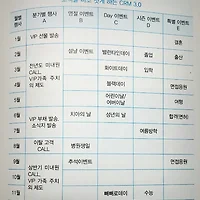 CRM 3.0
월별 행사
분기별 행사 A
명절 이벤트 B
Day 이벤트 C
시즌 이벤트 D
특별 이벤트 E
1월
VIP 선물 발송
결혼
2월
설날 이벤트
발렌타인데이
졸업
출산
3월
전년도 미내원 CALL,
VIP 가족 주치의 제도
화이트데이
입학
4월
블랙데이
면접응원
5월
어린이날/
어버이날
여행
6월
치아의 날
성년의 날
7월
VIP 부채 발송,
소식지 발송
여름방학
8월
이탈 고객 CALL
병원생일
9월
추석이벤트
면접응원
10월
상반기 미내원 CALL,
VIP 가족 주치의 제도
11월
빼빼로데이
수능